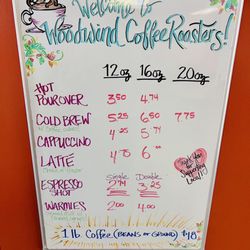 Welcome to
Woodwind Coffee Roasters!
12oz 16oz 20oz
HOT
POUROVER 3.50 4.74
COLD BREW 5.25 6.50 7.75
CAPPUCCINO 4.25 5.75
LATTÉ 4.75 6.00
Single Double
ESPRESSO
SHOT 2.74 3.25
WARMIES 2.00 4.00
Thank You
Supporting
Local!
1 lb. Coffee (BEANS OR GROUND) $18